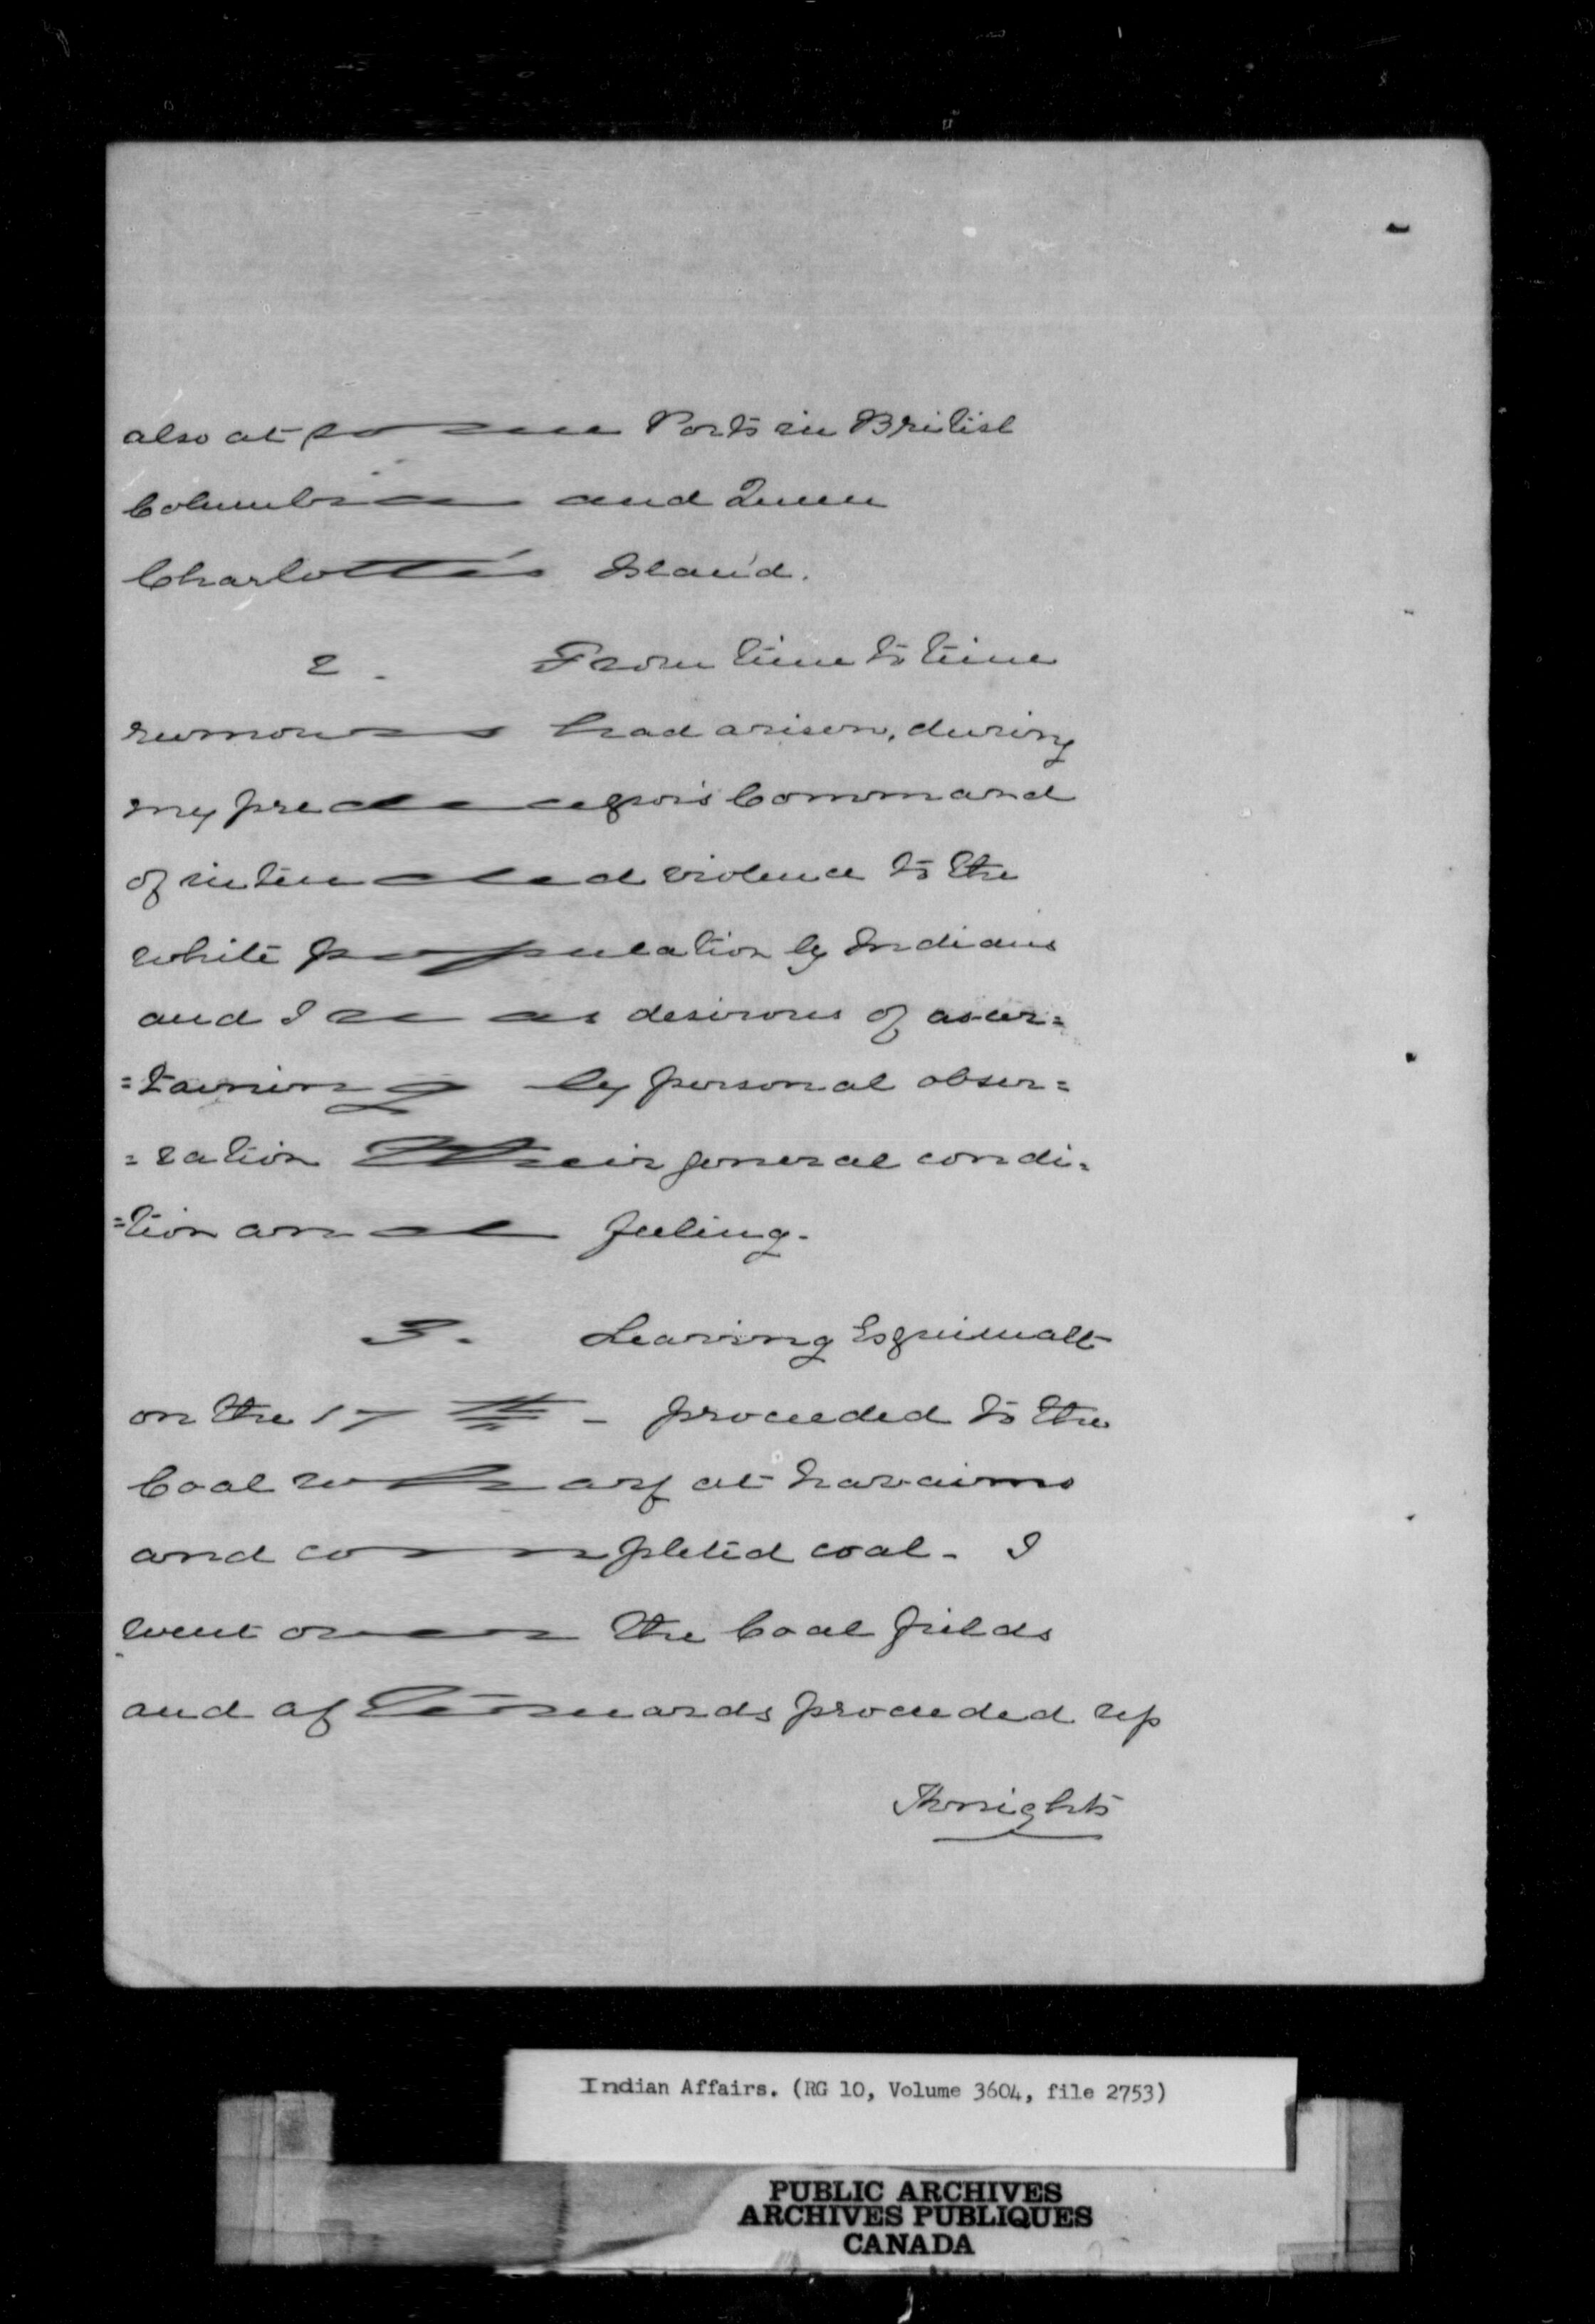 also at some Ports in British
Columbia and Queen
Charlotte's Island.
2. From time to time
rumours had arisen, during
my predecessor's Command
of intended violence to the
white population by Indians
and I was desirous of ascer=
=taining by personal obser=
=vation their general condi=
=tion and feeling.
3. Leaving Esquimalt
on the 17th - proceeded to the
Coal wharf at Nanaimo
and completed coal - I
went over the Coal fields
and afterwards proceeded up
Knights
Indian Affairs. (RG 10, Volume 3604, file 2753)
PUBLIC ARCHIVES
ARCHIVES PUBLIQUES
CANADA